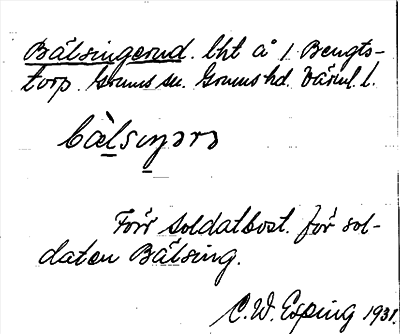 Bälsingerud. lht å 1 Bengts-
torp. Grums sn. Grums hd. Värml. l.
bàlsıŋərɷ
Förr soldatbost. för sol-
daten Bälsing.
C. W. Esping 1931.